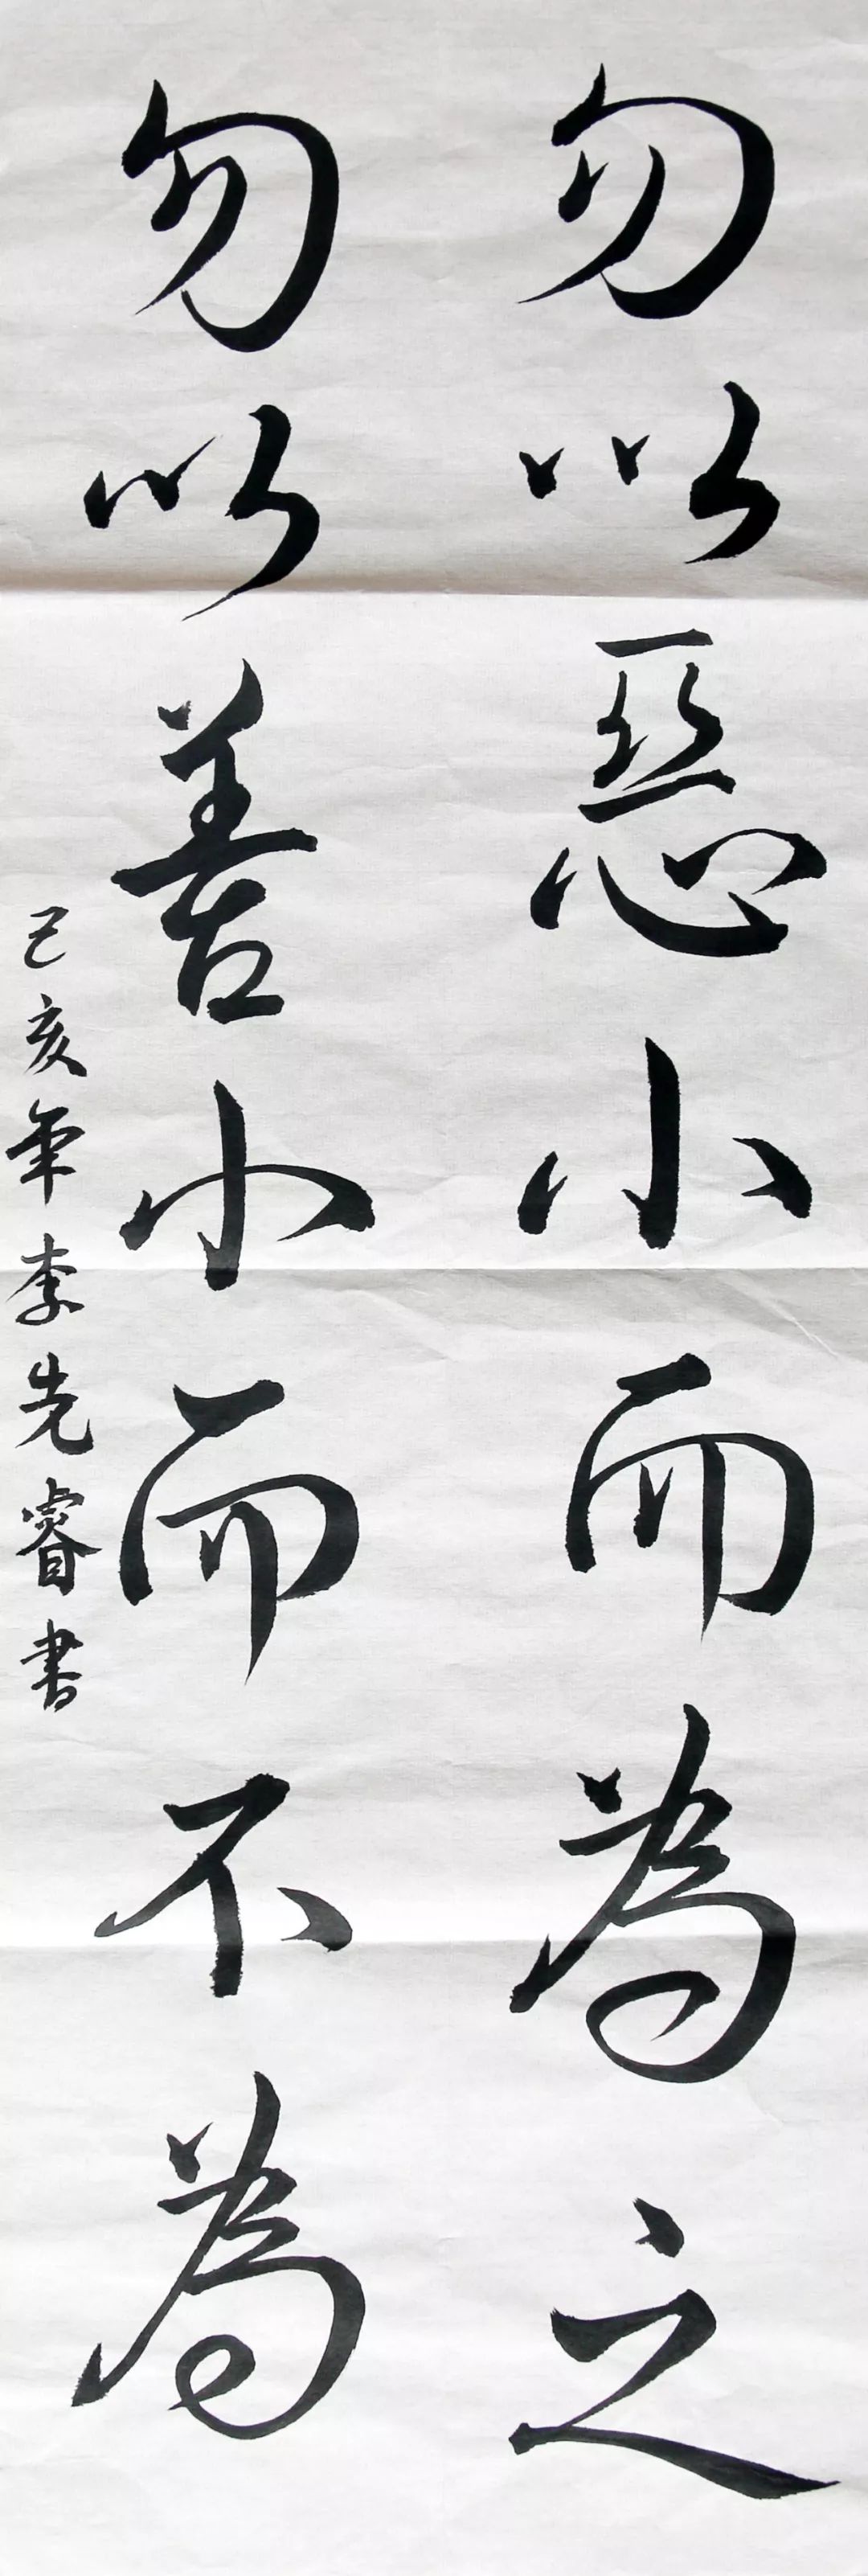 勿以惡小而為之
勿以善小而不為
己亥年李先睿書